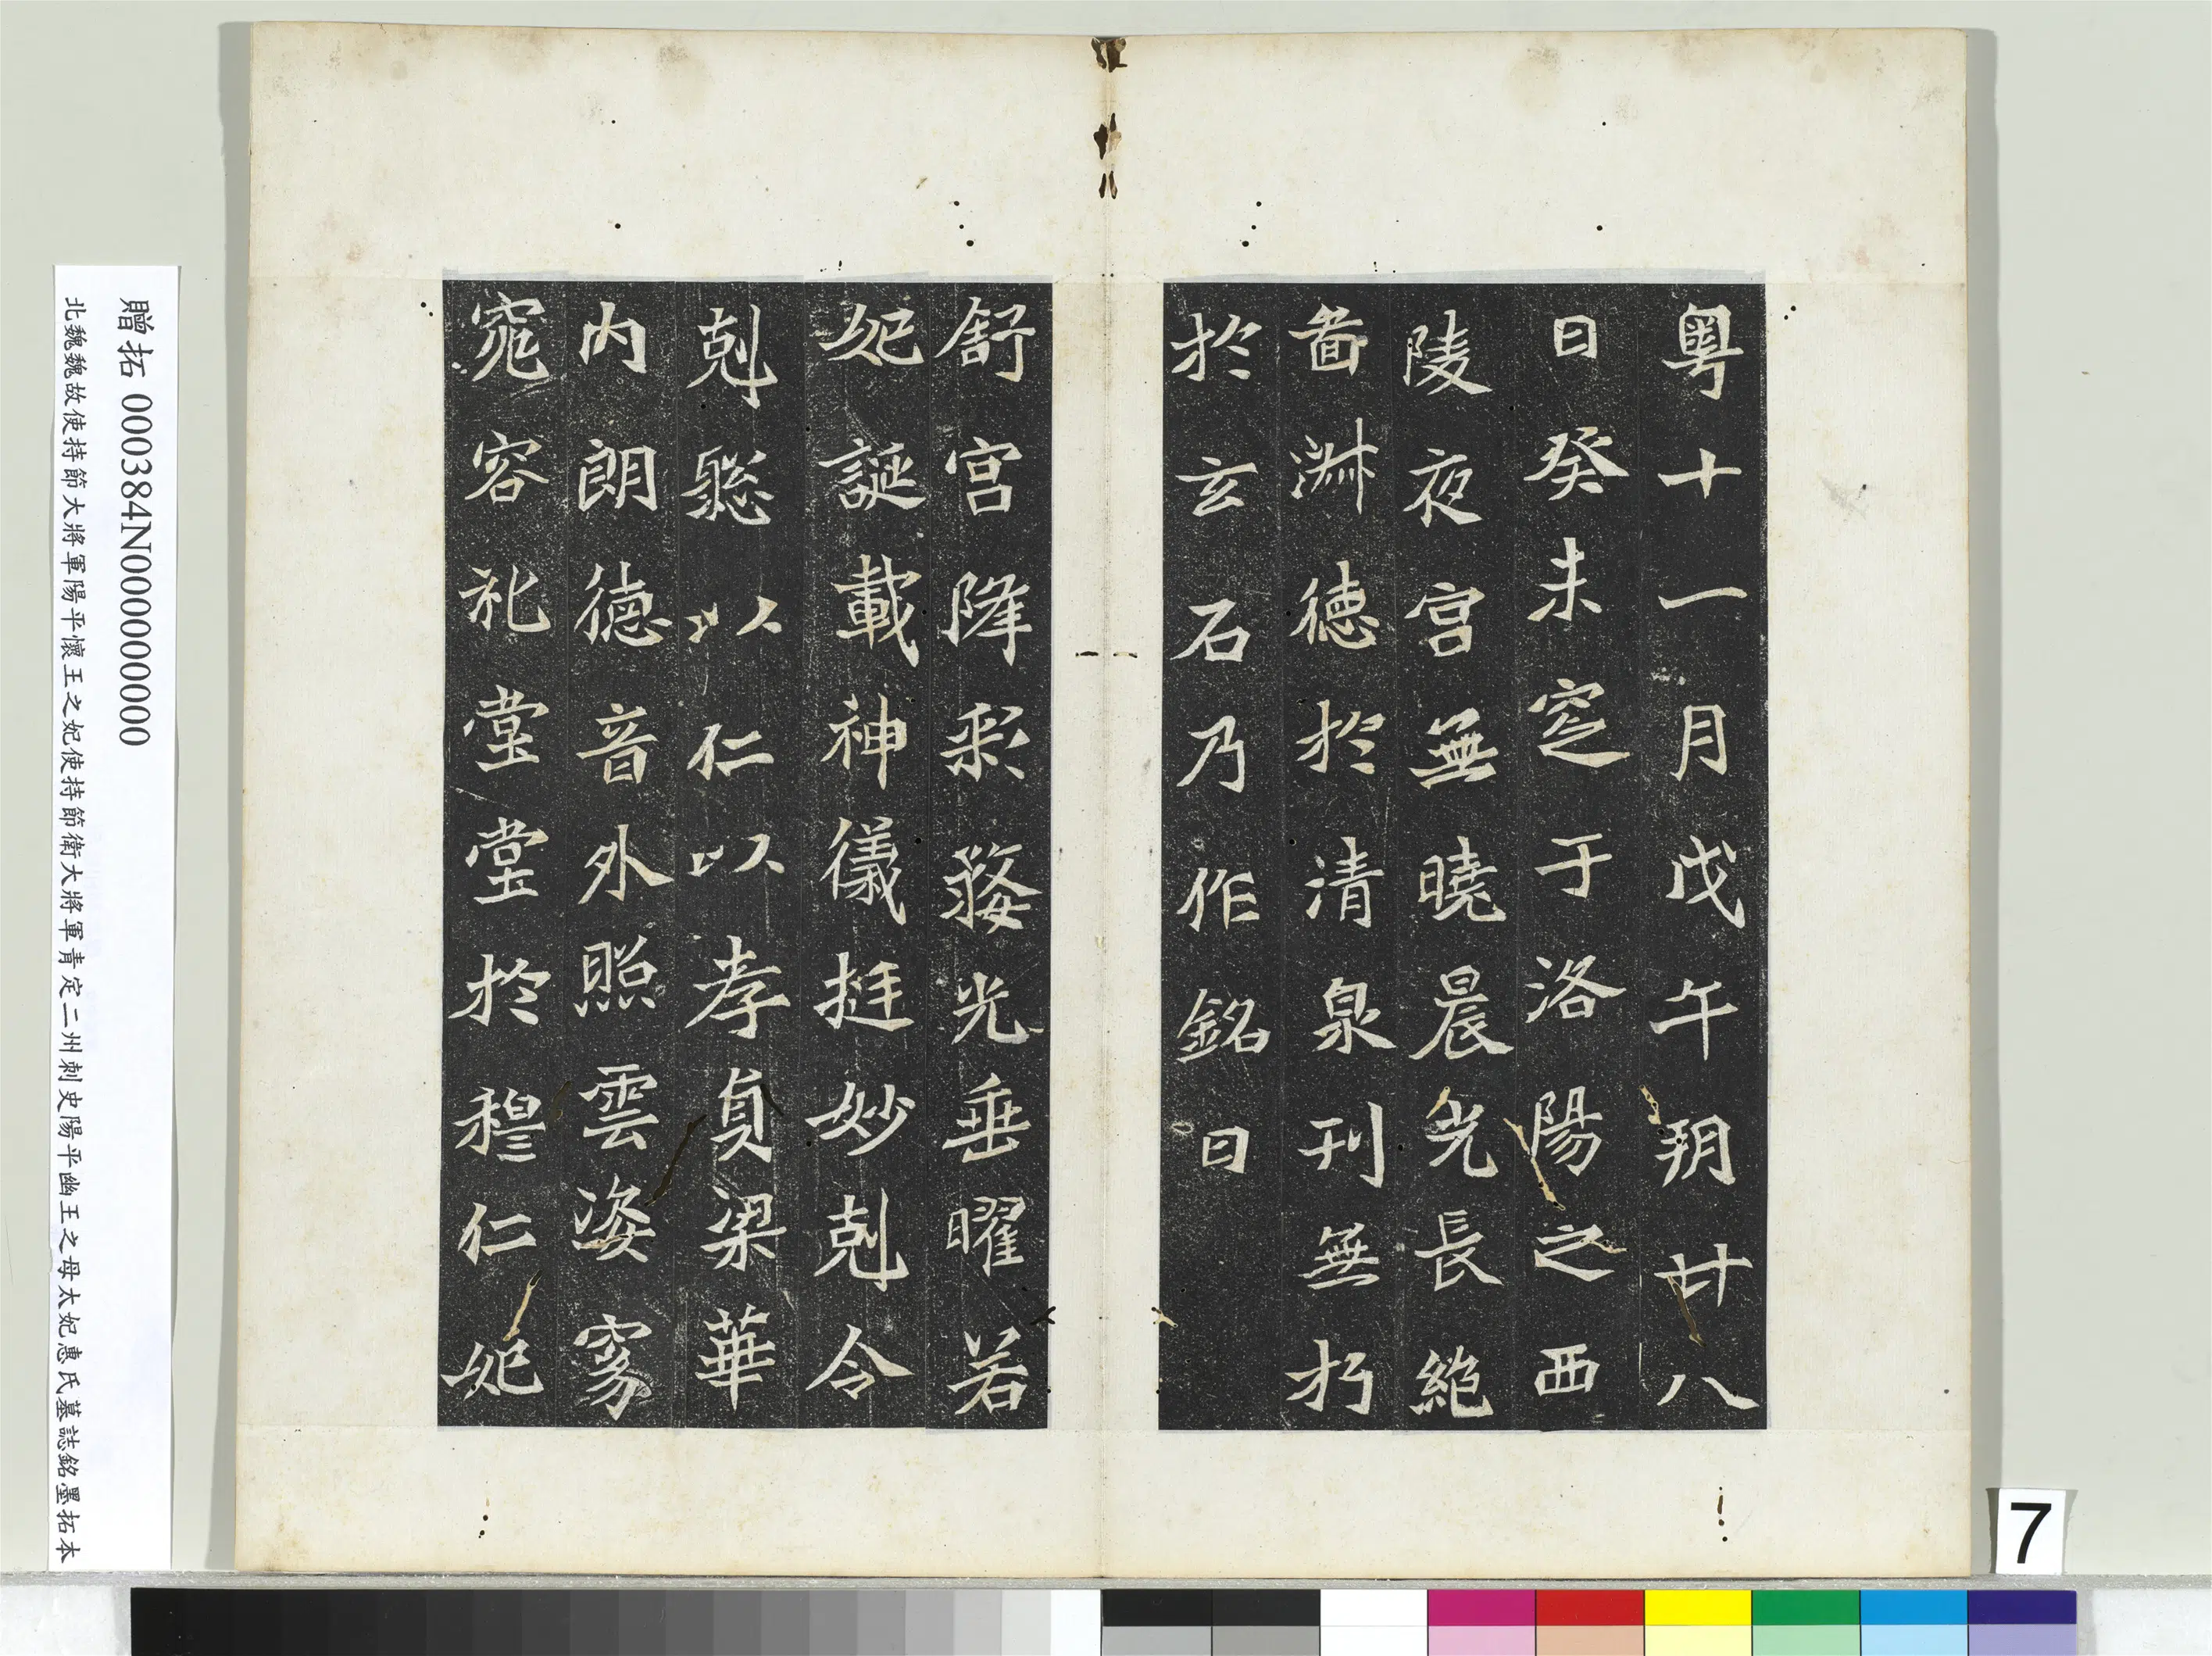 粤十一月戊午朔廿八
日癸未窆于洛陽之西
陵夜宮無曉晨光長絕
啚淋德於清泉刊無朽
於玄石乃作銘曰
舒宮降彩婺光垂曜若
妃誕載神儀挺妙剋令
剋聡以仁以孝貞梁華
内朗德音外照雲姿窈
窕容礼堂堂於穆仁妃
贈拓 000384N000000000
北魏魏故使持節大將軍陽平懷王之妃使持節衛大將軍青定二州刺史陽平幽王之母太妃惠氏墓誌銘墨拓本
7